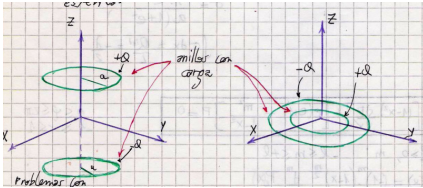 Z
+Q
a
anillos con
carga
X
Y
-Q
a
Problemas con
Z
-Q
+Q
X
Y